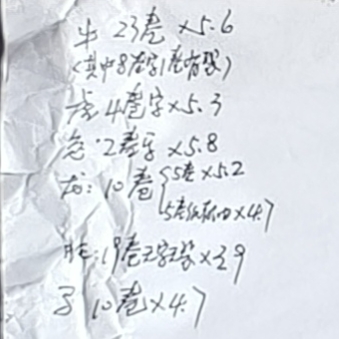 牛 23卷×5.6
(其中8卷字1卷有袋)
虎 4卷字×5.3
兔·2卷字×5.8
龙:10卷 5卷×5.2
5卷 ×4.7
:19卷无字无袋×3.9
10卷×4.7